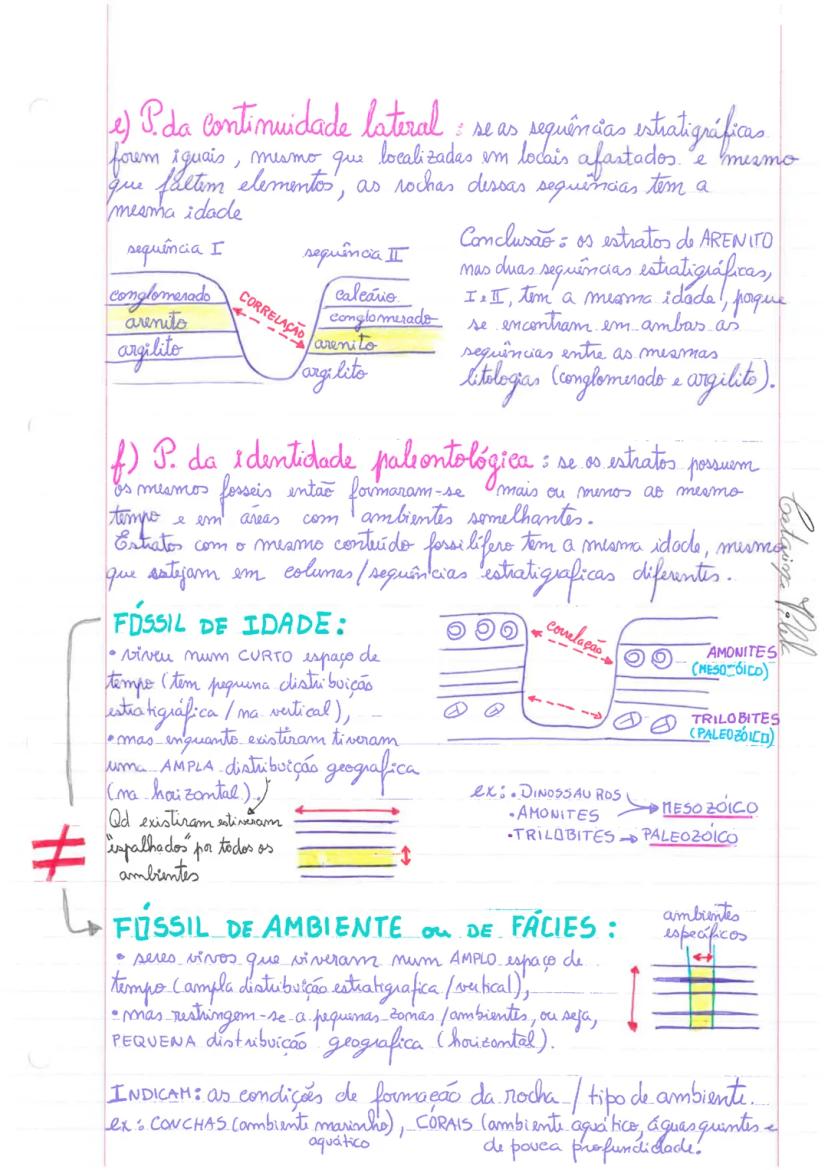 e) P. da continuidade lateral : se as sequências estratigráficas
forem iguais, mesmo que localizadas em locais afastados e mesmo
que faltem elementos, as rochas dessas sequências tem a
mesma idade
sequência I
conglomerado
arenito
argilito
CORRELAÇÃO
sequência II
calcário
conglomerado
arenito
argilito
Conclusão: os estratos de ARENITO
nas duas sequências estratigráficas,
I e II, tem a mesma idade, porque
se encontram em ambas as
sequências entre as mesmas
litologias (conglomerado e argilito).
f) P. da identidade paleontológica : se os estratos possuem
os mesmos fosseis então formaram-se mais ou menos ao mesmo
tempo e em áreas com ambientes semelhantes.
Estratos com o mesmo conteúdo fossilífero tem a mesma idade, mesmo
que estejam em colunas/sequências estratigraficas diferentes.
FÓSSIL DE IDADE:
• viveu num CURTO espaço de
tempo (tem pequena distribuição
estratigráfica / na vertical),
• mas enquanto existiram tiveram
uma AMPLA distribuição geografica
(na horizontal).
Qd existiram estiveram
"espalhados" por todos os
ambientes
correlação
AMONITES
(MESOZÓICO)
TRILOBITES
(PALEOZÓICO)
ex: • DINOSSAUROS
• AMONITES → MESOZÓICO
• TRILOBITES → PALEOZÓICO
≠
FÓSSIL DE AMBIENTE ou DE FÁCIES :
• seres vivos que viveram num AMPLO espaço de
tempo (ampla distribuição estratigrafica / vertical),
• mas restringem-se a pequenas zonas /ambientes, ou seja,
PEQUENA distribuição geografica (horizontal).
ambientes
específicos
INDICAM: as condições de formação da rocha / tipo de ambiente.
ex: CONCHAS (ambiente marinho), CORAIS (ambiente aquático, águas quentes e
aquático
de pouca profundidade.